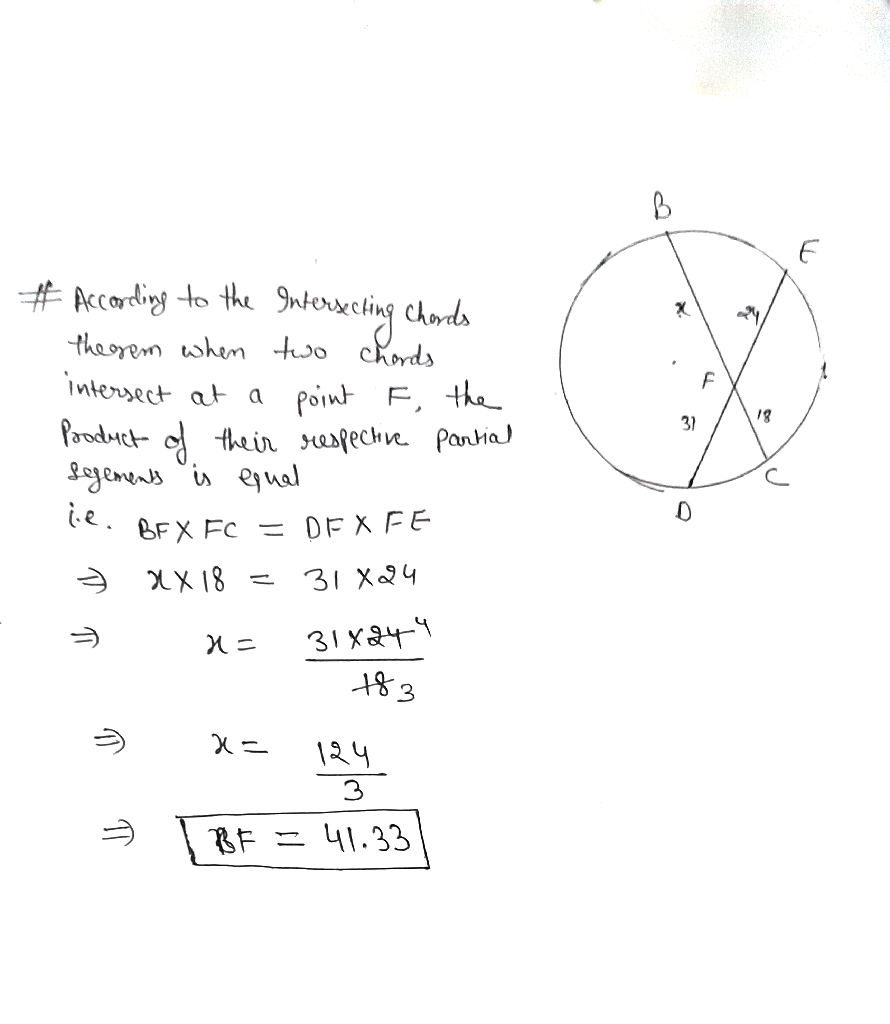 # According to the Intersecting chords
theorem when two chords
intersect at a point F, the
Product of their respective partial
segements is equal
i.e. BF X FC = DF X FE
⇒ x X 18 = 31 X 24
⇒ x = 31 X 24 4
18 3
⇒ x = 124
3
⇒ BF = 41.33
B
E
x
24
F
31
18
C
D